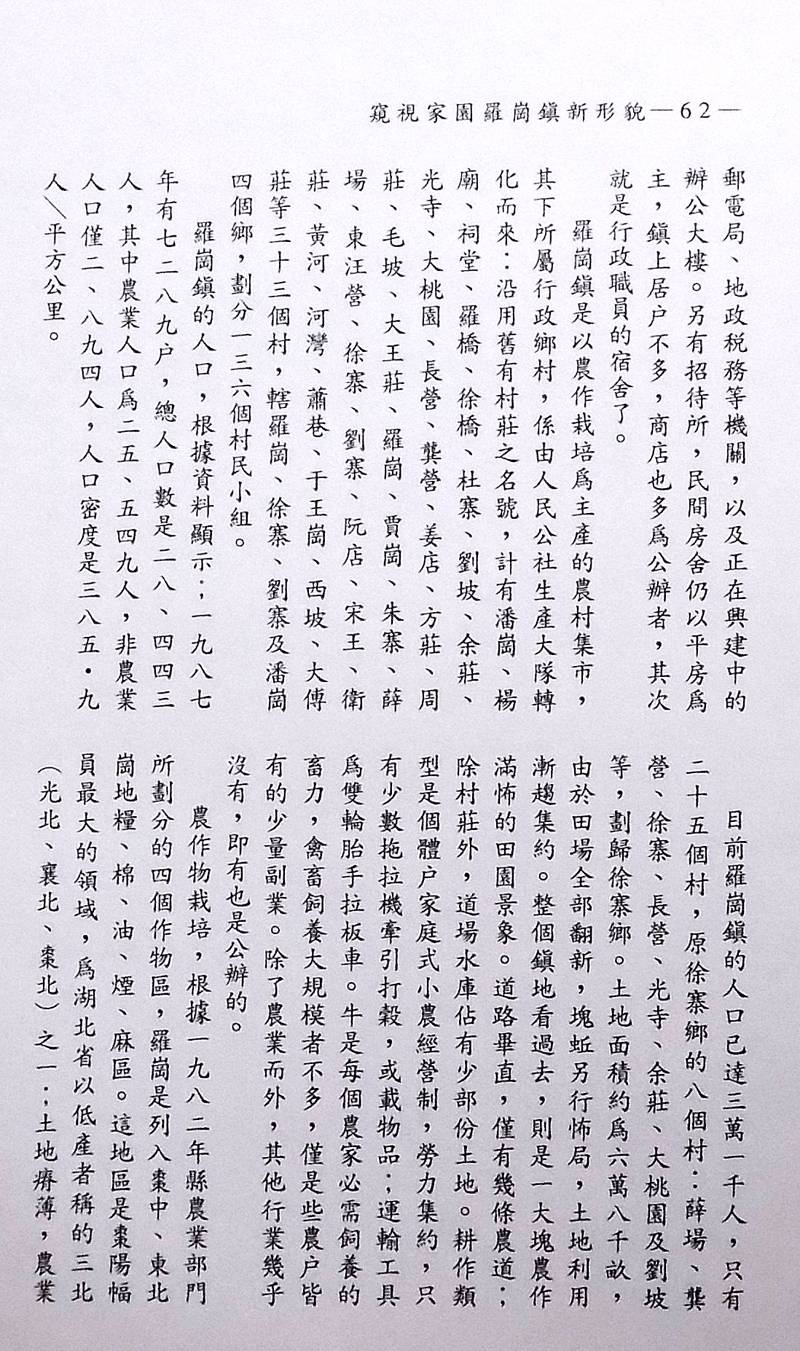 窺視家園羅崗鎮新形貌—62—
郵電局、地政税務等機關，以及正在興建中的
辦公大樓。另有招待所，民間房舍仍以平房爲
主，鎮上居户不多，商店也多爲公辦者，其次
就是行政職員的宿舍了。
羅崗鎮是以農作栽培爲主產的農村集市，
其下所屬行政鄉村，係由人民公社生產大隊轉
化而來：沿用舊有村莊之名號，計有潘崗、楊
廟、祠堂、羅橋、徐橋、杜寨、劉坡、余莊、
光寺、大桃園、長營、龔營、姜店、方莊、周
莊、毛坡、大王莊、羅崗、賈崗、朱寨、薛
場、東汪營、徐寨、劉寨、阮店、宋王、衛
莊、黃河、河灣、蕭巷、于王崗、西坡、大傅
莊等三十三個村，轄羅崗、徐寨、劉寨及潘崗
四個鄉，劃分一三六個村民小組。
羅崗鎮的人口，根據資料顯示；一九八七
年有七二八九户，總人口數是二八、四四三
人，其中農業人口爲二五、五四九人，非農業
人口僅二、八九四人，人口密度是三八五・九
人＼平方公里。
目前羅崗鎮的人口已達三萬一千人，只有
二十五個村，原徐寨鄉的八個村：薛場、龔
營、徐寨、長營、光寺、余莊、大桃園及劉坡
等，劃歸徐寨鄉。土地面積約爲六萬八千畝，
由於田場全部翻新，塊蚯另行怖局，土地利用
漸趨集約。整個鎮地看過去，則是一大塊農作
滿怖的田園景象。道路畢直，僅有幾條農道；
除村莊外，道場水庫佔有少部份土地。耕作類
型是個體户家庭式小農經營制，勞力集約，只
有少數拖拉機牽引打穀，或載物品；運輸工具
爲雙輪胎手拉板車。牛是每個農家必需飼養的
畜力，禽畜飼養大規模者不多，僅是些農户皆
有的少量副業。除了農業而外，其他行業幾乎
沒有，即有也是公辦的。
農作物栽培，根據一九八二年縣農業部門
所劃分的四個作物區，羅崗是列入棗中、東北
崗地糧、棉、油、煙、麻區。這地區是棗陽幅
員最大的領域，爲湖北省以低產者稱的三北
（光北、襄北、棗北）之一；土地瘠薄，農業